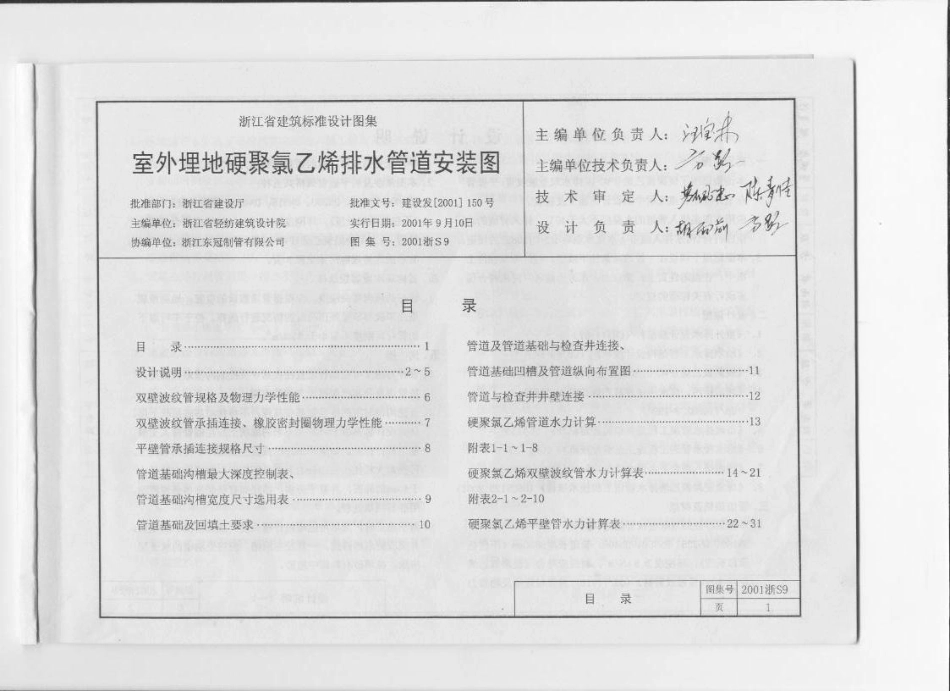 浙江省建筑标准设计图集
室外埋地硬聚氯乙烯排水管道安装图
批准部门：浙江省建设厅 批准文号：建设发[2001]150号
主编单位：浙江省轻纺建筑设计院 实行日期：2001年9月10日
协编单位：浙江东冠制管有限公司 图集号：2001浙S9
主编单位负责人：
主编单位技术负责人：
技术审定人：
设计负责人：
目 录
目 录……1
设计说明……2~5
双壁波纹管规格及物理力学性能……6
双壁波纹管承插连接、橡胶密封圈物理力学性能……7
平壁管承插连接规格尺寸……8
管道基础沟槽最大深度控制表、
管道基础沟槽宽度尺寸选用表……9
管道基础及回填土要求……10
管道及管道基础与检查井连接、
管道基础凹槽及管道纵向布置图……11
管道与检查井井壁连接……12
硬聚氯乙烯管道水力计算……13
附表1-1~1-8
硬聚氯乙烯双壁波纹管水力计算表……14~21
附表2-1~2-10
硬聚氯乙烯平壁管水力计算表……22~31
目 录
图集号 2001浙S9
页 1